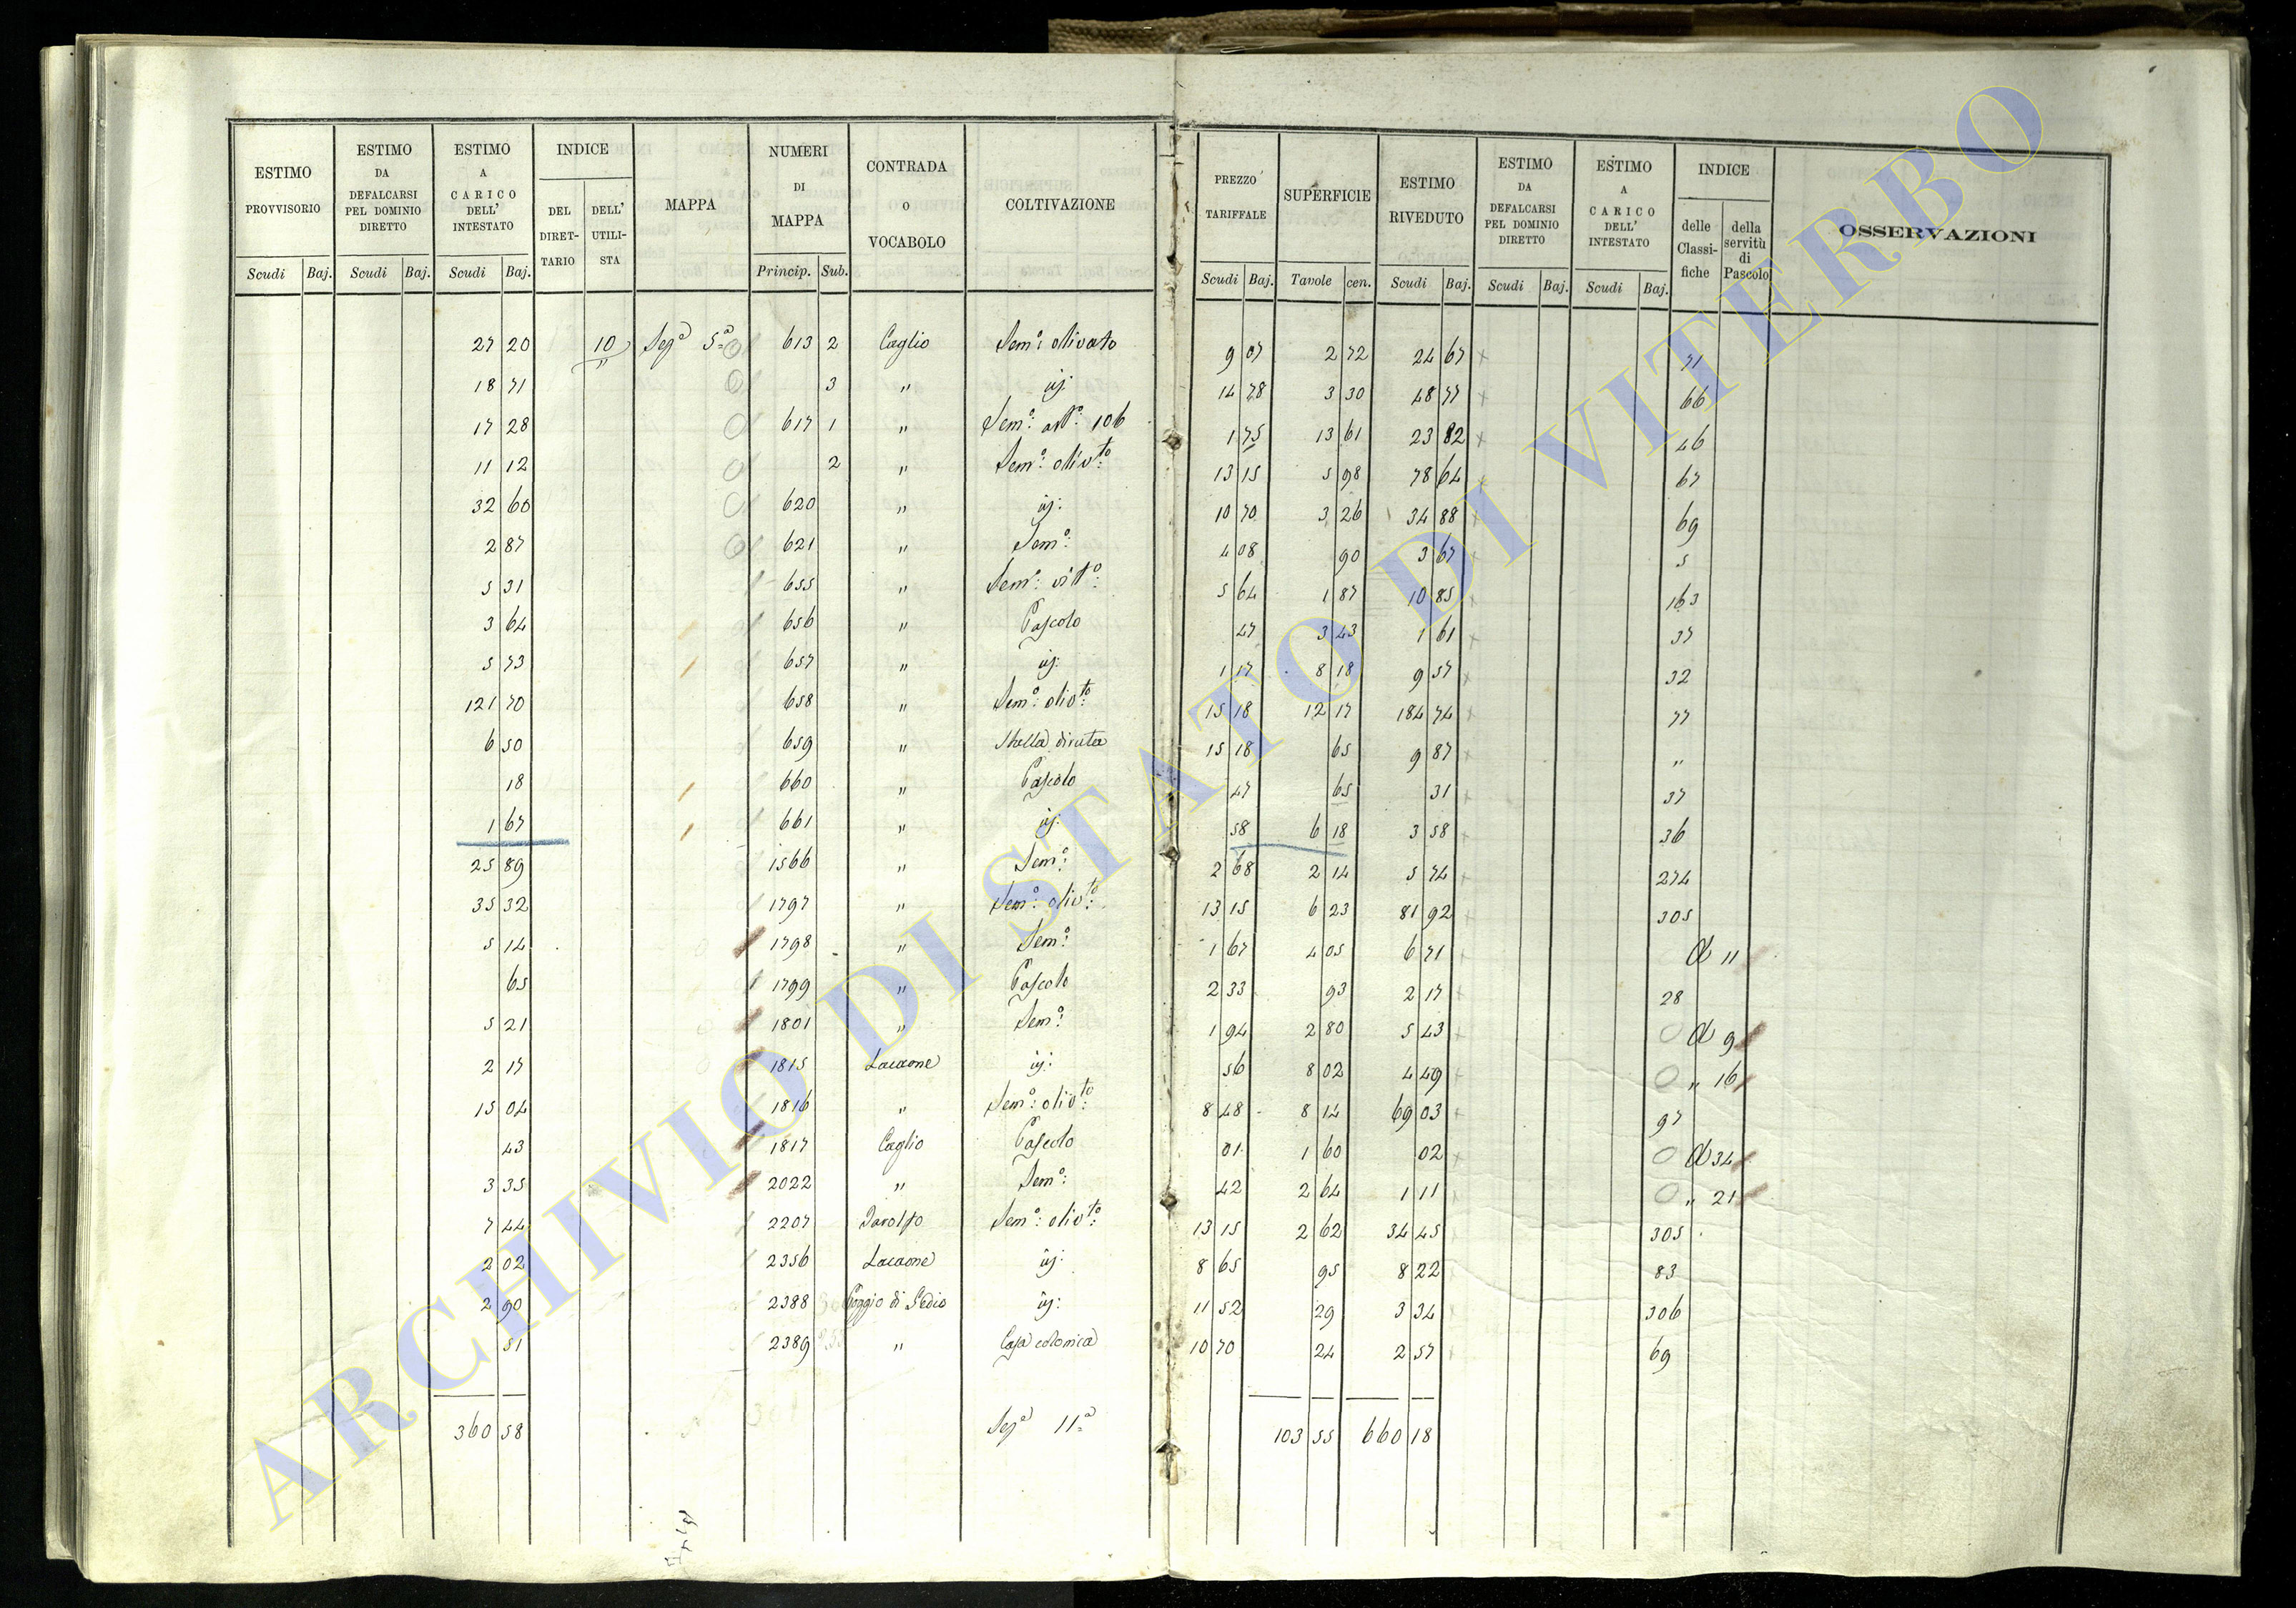 ESTIMO PROVVISORIO | ESTIMO DA DEFALCARSI PEL DOMINIO DIRETTO | ESTIMO A CARICO DELL' INTESTATO | INDICE | MAPPA | NUMERI DI MAPPA | CONTRADA O VOCABOLO | COLTIVAZIONE | PREZZO TARIFFALE | SUPERFICIE | ESTIMO RIVEDUTO | ESTIMO DA DEFALCARSI PEL DOMINIO DIRETTO | ESTIMO A CARICO DELL' INTESTATO | INDICE | OSSERVAZIONI
DEL DIRETTARIO | DELL' UTILISTA | delle Classifiche | della servitù di Pascolo
Scudi | Baj. | Scudi | Baj. | Scudi | Baj. | Princip. | Sub. | Scudi | Baj. | Tavole | cen. | Scudi | Baj. | Scudi | Baj. | Scudi | Baj.
27 20 | 10 | Segª 5ª | 613 2 | Caglio | Semº: olivato | 9 07 | 2 72 | 24 67 | 71
18 71 | " | 3 | " | iij | 14 78 | 3 30 | 48 77 | 66
17 28 | 617 1 | " | Semº: artº: 106 | 1 75 | 13 61 | 23 82 | 46
11 12 | 2 | " | Semº: olivto: | 13 15 | 5 98 | 78 64 | 67
32 60 | 620 | " | iij: | 10 70 | 3 26 | 34 88 | 69
2 87 | 621 | " | Semº: | 4 08 | 90 | 3 67 | 5
5 31 | 655 | " | Semº: vitº: | 5 64 | 1 87 | 10 85 | 163
3 64 | 656 | " | Pascolo | 47 | 3 43 | 1 61 | 37
5 73 | 657 | " | iij: | 1 17 | 8 18 | 9 57 | 32
121 70 | 658 | " | Semº: olivto: | 15 18 | 12 17 | 184 74 | 77
6 50 | 659 | " | Stalla diruta | 15 18 | 65 | 9 87 | "
18 | 660 | " | Pascolo | 47 | 65 | 31 | 37
1 67 | 661 | " | iij: | 58 | 6 18 | 3 58 | 36
25 89 | 1566 | " | Semº: | 2 68 | 2 14 | 5 74 | 274
35 32 | 1797 | " | Semº: olivto: | 13 15 | 6 23 | 81 92 | 305
5 14 | 1798 | " | Semº: | 1 67 | 4 05 | 6 71 | A 11
65 | 1799 | " | Pascolo | 2 33 | 93 | 2 17 | 28
5 21 | 1801 | " | Semº: | 1 94 | 2 80 | 5 43 | A 9
2 17 | 1815 | Lacione | iij: | 56 | 8 02 | 4 49 | " 16
15 04 | 1816 | " | Semº: olivto: | 8 48 | 8 14 | 69 03 | 97
43 | 1817 | Caglio | Pascolo | 01 | 1 60 | 02 | A 34
3 35 | 2022 | " | Semº: | 42 | 2 64 | 1 11 | " 21
7 44 | 2207 | Semº: olivto: | 13 15 | 2 62 | 34 45 | 305
2 02 | 2356 | Lacione | iij: | 8 65 | 95 | 8 22 | 83
2 90 | 2388 | Poggio di Sedio | iij: | 11 52 | 29 | 3 34 | 306
51 | 2389 | " | Casa colonica | 10 70 | 24 | 2 57 | 69
360 58 | Segª 11ª | 103 55 | 660 18
ARCHIVIO DI STATO DI VITERBO